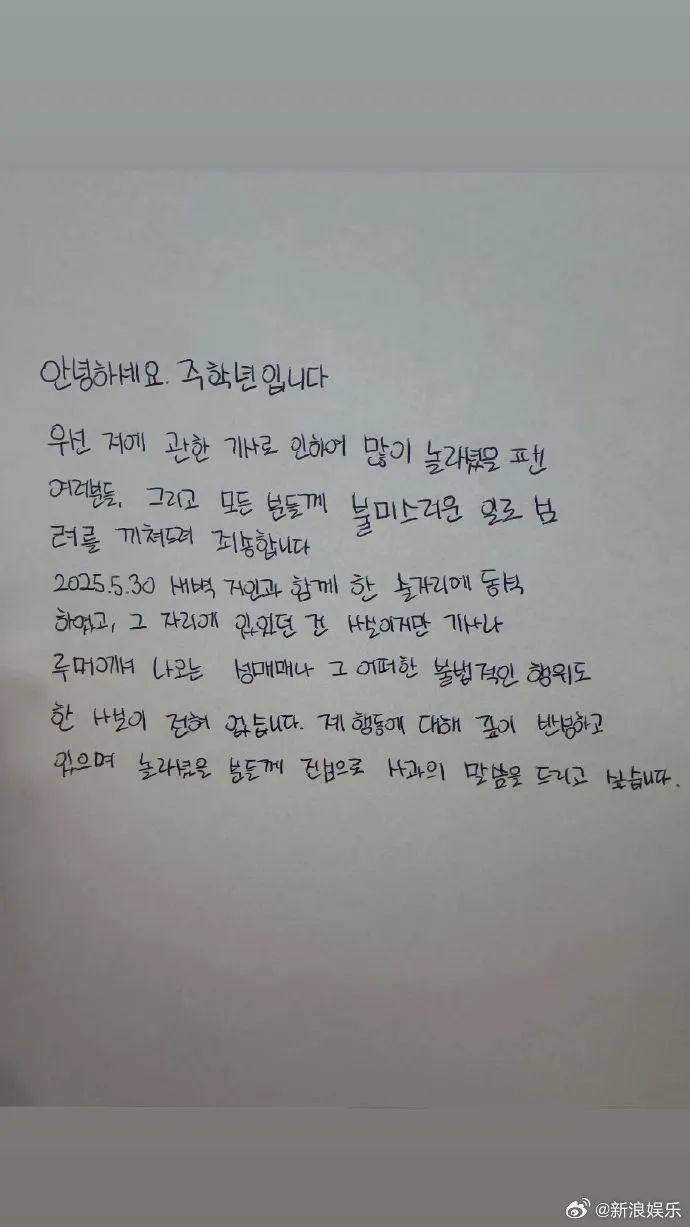 안녕하세요. 주학년입니다
우선 저에 관한 기사로 인하여 많이 놀라셨을 팬
여러분들, 그리고 모든 분들께 불미스러운 일로 심
려를 끼쳐드려 죄송합니다
2025.5.30 새벽 지인과 함께 한 술자리에 동석
하였고, 그 자리에 있었던 건 사실이지만 기사나
루머에서 나오는 성매매나 그 어떠한 불법적인 행위도
한 사실이 전혀 없습니다. 제 행동에 대해 깊이 반성하고
있으며 놀라셨을 분들께 진심으로 사과의 말씀을 드리고 싶습니다.
@新浪娱乐